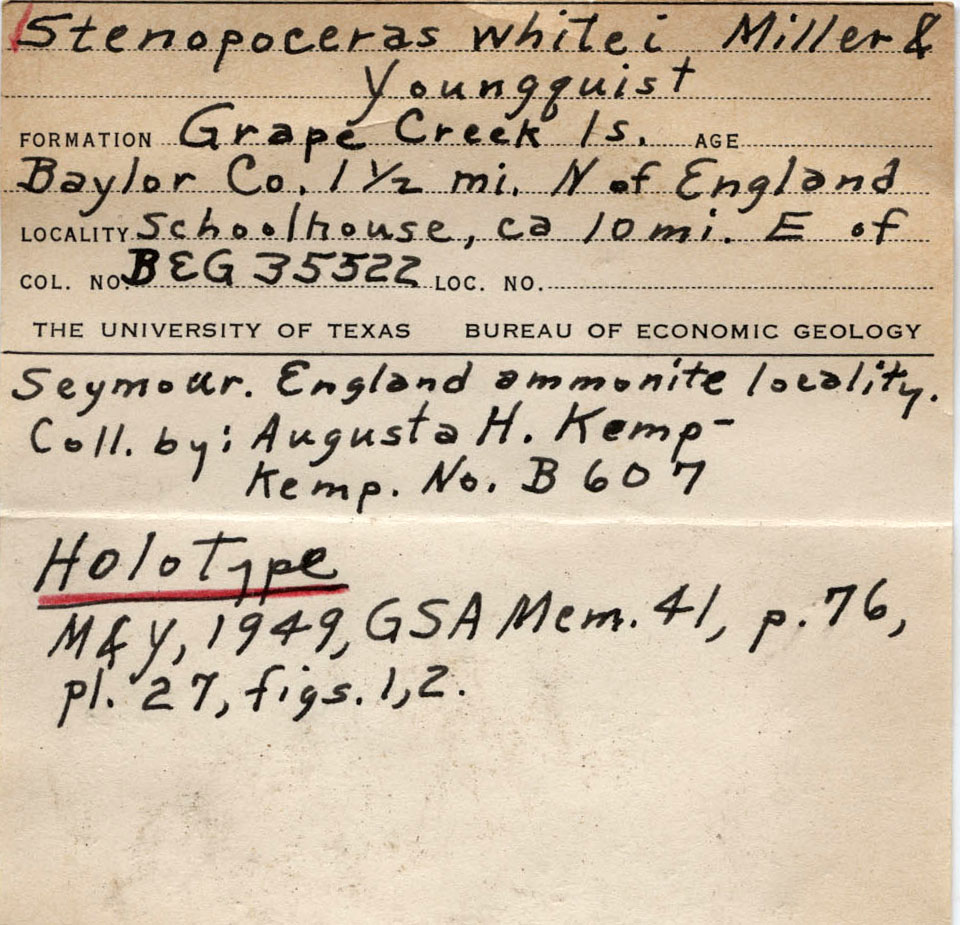 Stenopoceras whitei Miller &
Youngquist
FORMATION Grape Creek ls. AGE
Baylor Co. 1 1/2 mi. N of England
LOCALITY Schoolhouse, ca 10 mi. E of
COL. NO. BEG 35522 LOC. NO.
THE UNIVERSITY OF TEXAS BUREAU OF ECONOMIC GEOLOGY
Seymour. England ammonite locality.
Coll. by: Augusta H. Kemp-
Kemp. No. B 607
Holotype
M & Y, 1949, GSA Mem. 41, p. 76,
pl. 27, figs. 1, 2.